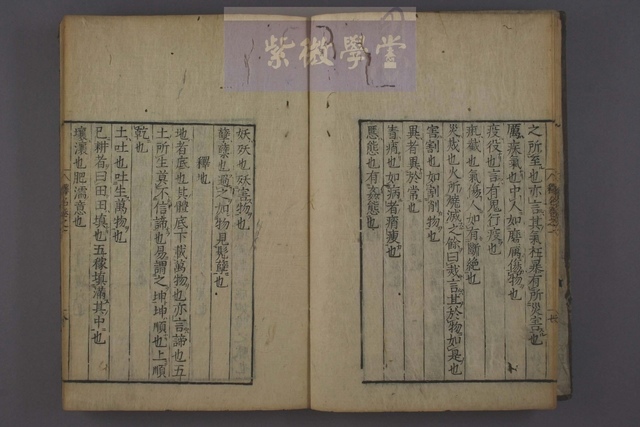 紫微學堂
之所至也亦言其氣枉暴有所災害也
厲疾氣也中人如磨厲傷物也
疫役也言有鬼行疫也
截也氣傷人如有斷絕也
災烖也火所燒滅之餘曰烖言其於物如是也
害割也如割削物也
異者異於常也
眚痟也如病者痟瘦也
慝態也有姦態也
妖殀也妖害物也
孽櫱也遇之如物見髡櫱也
釋地
地者底也其體底下載萬物也亦言諦也五
土所生莫不信諦也易謂之坤坤順也上順
乾也
土吐也吐生萬物也
已耕者曰田田填也五稼填滿其中也
壤瀼也肥濡意也